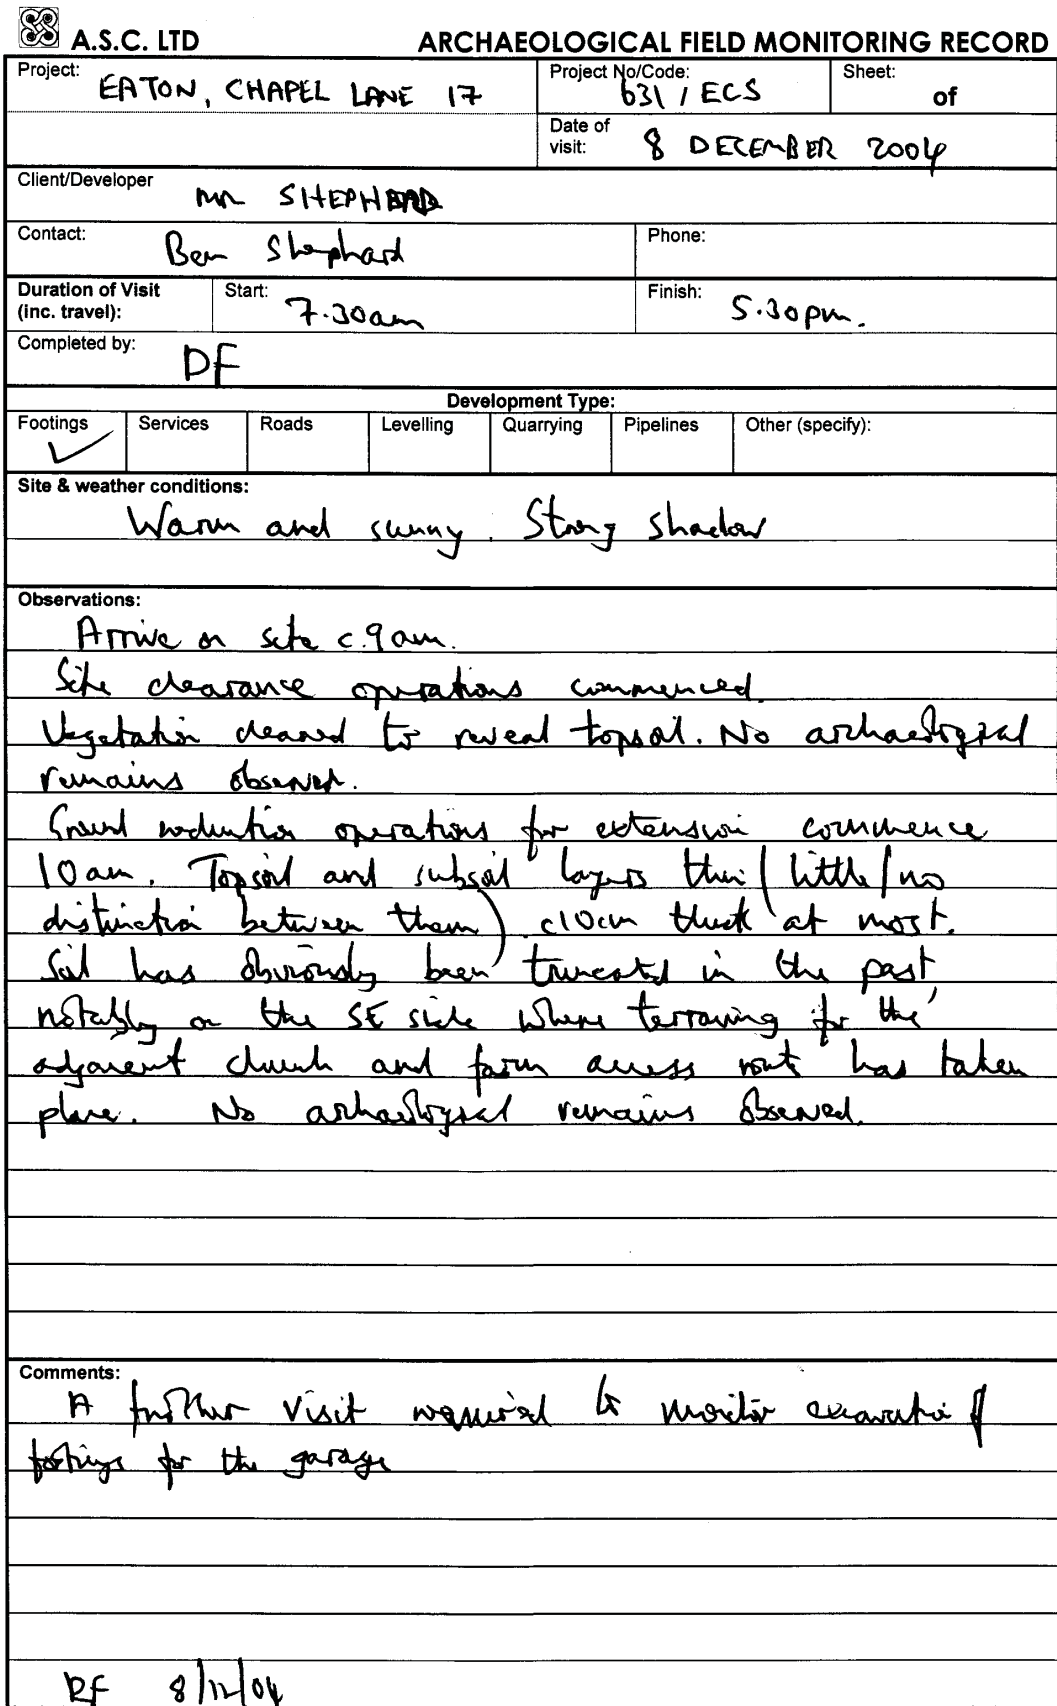 A.S.C. LTD ARCHAEOLOGICAL FIELD MONITORING RECORD
Project: EATON, CHAPEL LANE 17
Project No/Code: 631 / ECS
Sheet: of
Date of visit: 8 DECEMBER 2004
Client/Developer Mr SHEPHARD
Contact: Ben Shephard
Phone:
Duration of Visit (inc. travel):
Start: 7.30am
Finish: 5.30pm.
Completed by: DF
Development Type:
Footings ✓ Services Roads Levelling Quarrying Pipelines Other (specify):
Site & weather conditions:
Warm and sunny. Strong shadow
Observations:
Arrive on site c.9am.
Site clearance operations commenced.
Vegetation cleared to reveal topsoil. No archaeological
remains observed.
Ground reduction operations for extension commence
10am. Topsoil and subsoil layers thin (little/no
distinction between them) c10cm thick at most.
Soil has obviously been truncated in the past,
notably on the SE side where terracing for the
adjacent church and farm access route has taken
place. No archaeological remains observed.
Comments:
A further visit required to monitor excavation of
footings for the garage
DF 8/12/04